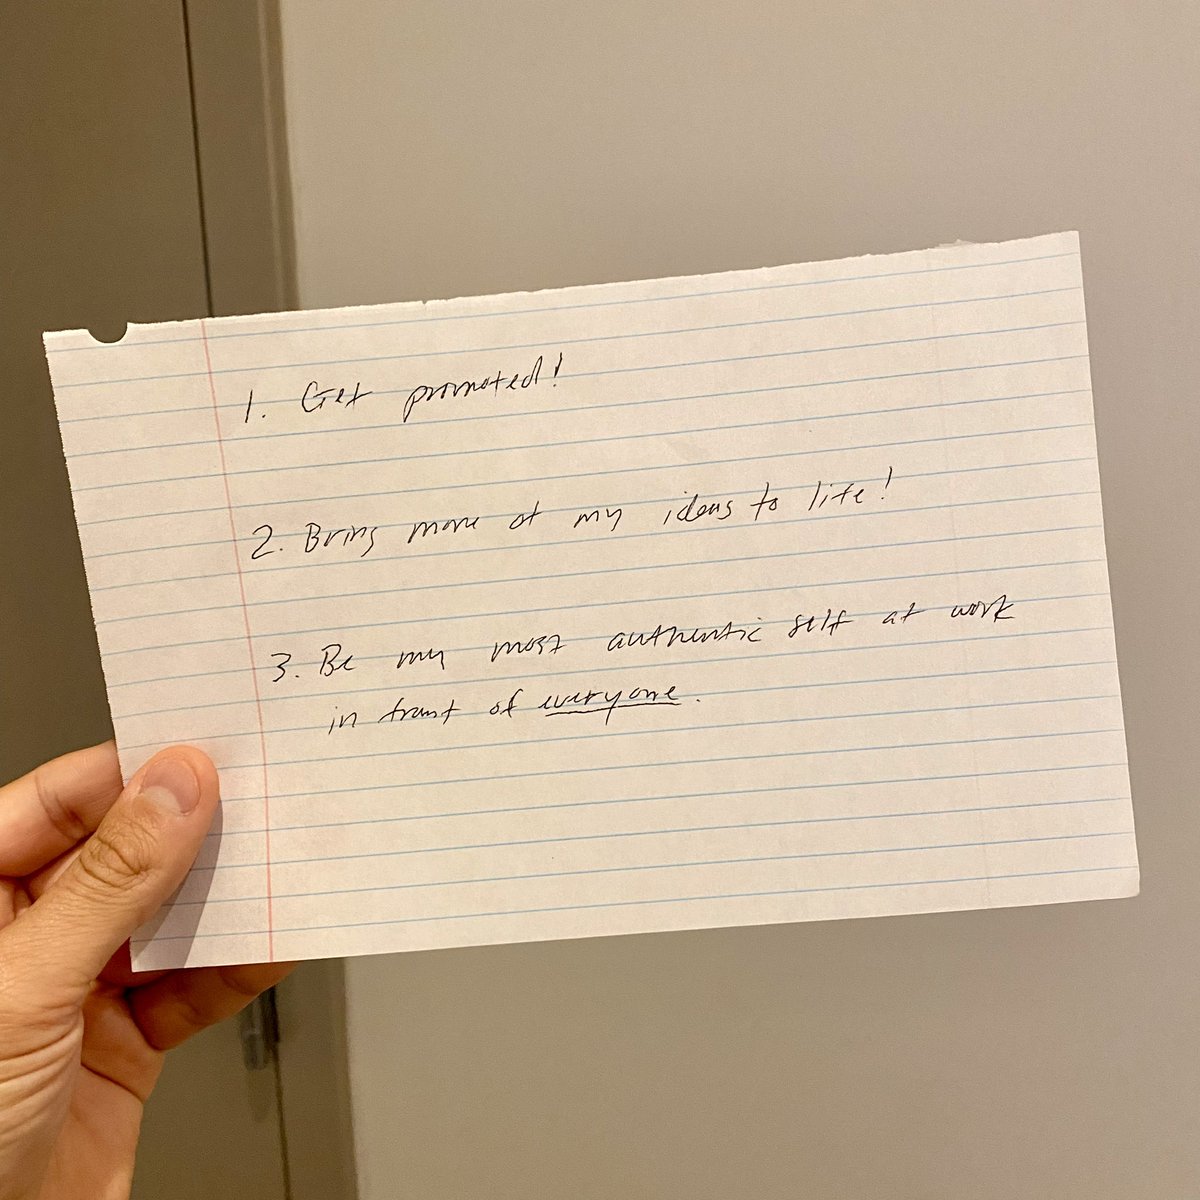 1. Get promoted!
2. Bring more of my ideas to life!
3. Be my most authentic self at work
in front of everyone.